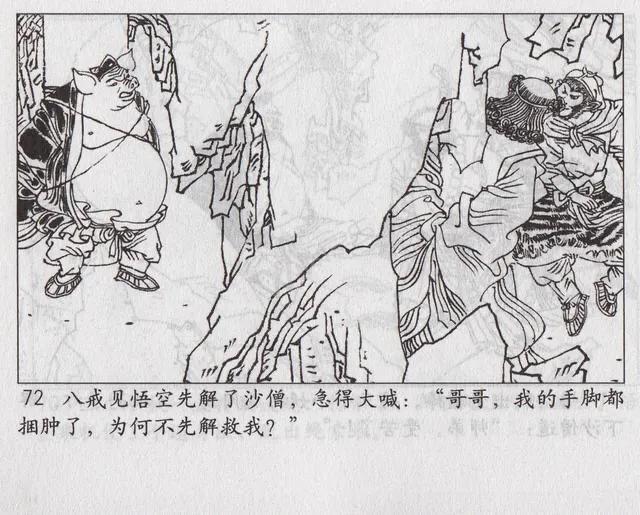 72 八戒见悟空先解了沙僧，急得大喊：“哥哥，我的手脚都
捆肿了，为何不先解救我？”